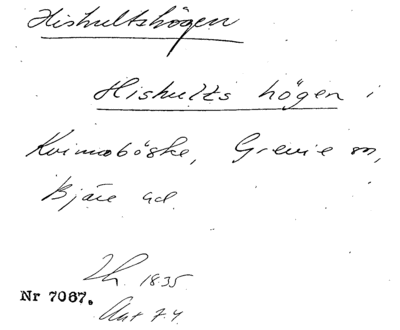 Hishultshögen
Hishults högen i
Kvinnaböske, Grevie sn,
Bjäre hd.
Th. 1835
Nr 7067.
Ant 7.4